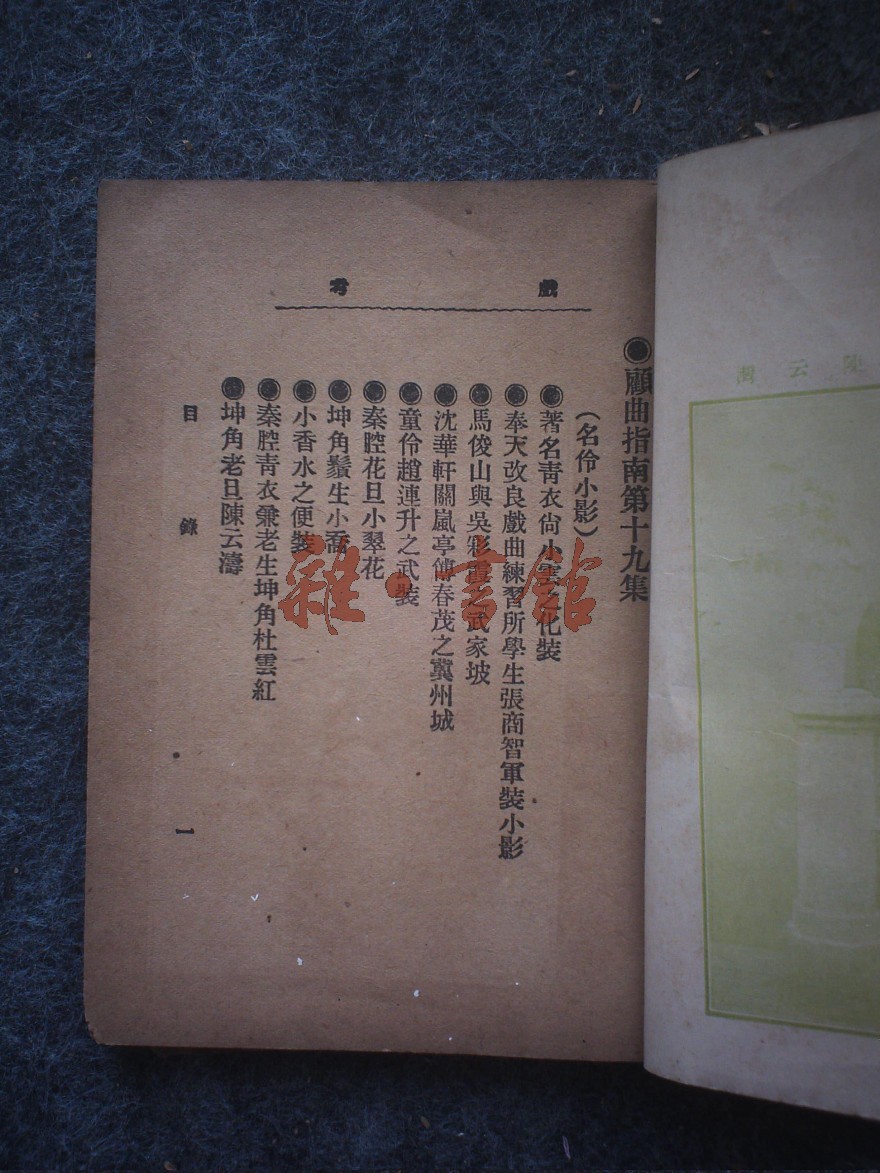 戲考
●顧曲指南第十九集
（名伶小影）
●著名靑衣尙小雲之化裝
●奉天改良戲曲練習所學生張商智軍裝小影
●馬俊山與吳彩霞之武家坡
●沈華軒關嵐亭傅春茂之冀州城
●童伶趙連升之武裝
●秦腔花旦小翠花
●坤角鬚生小喬
●小香水之便裝
●秦腔靑衣兼老生坤角杜雲紅
●坤角老旦陳云濤
目錄
一
陳云濤
雜·書館